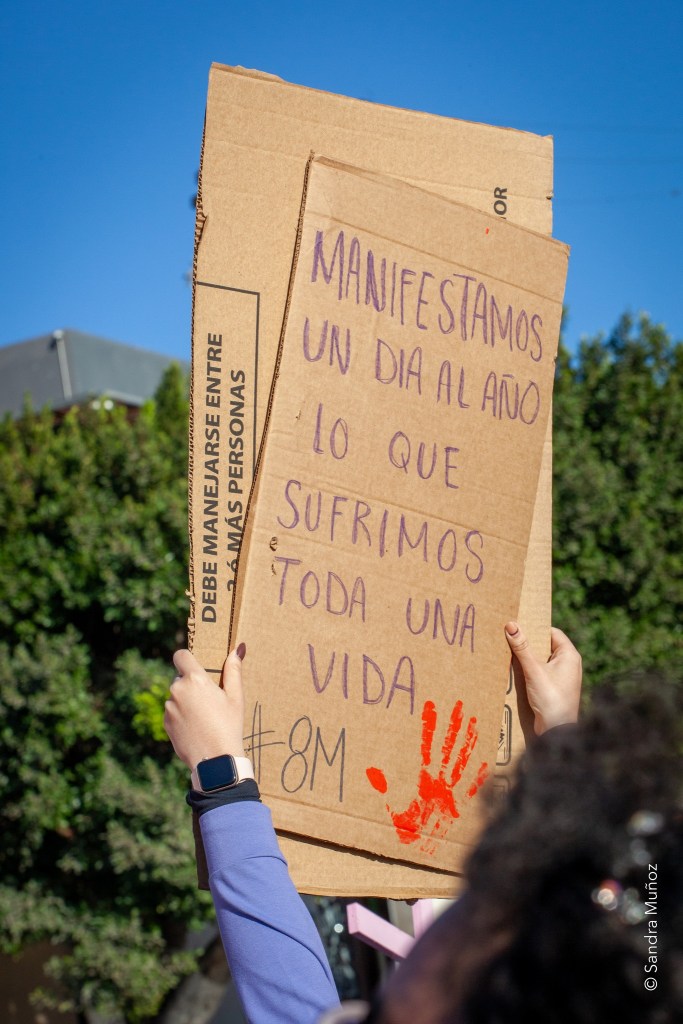 MANIFESTAMOS
UN DIA AL AÑO
LO QUE
SUFRIMOS
TODA UNA
VIDA
#8M
DEBE MANEJARSE ENTRE
2 ó MÁS PERSONAS
© Sandra Muñoz